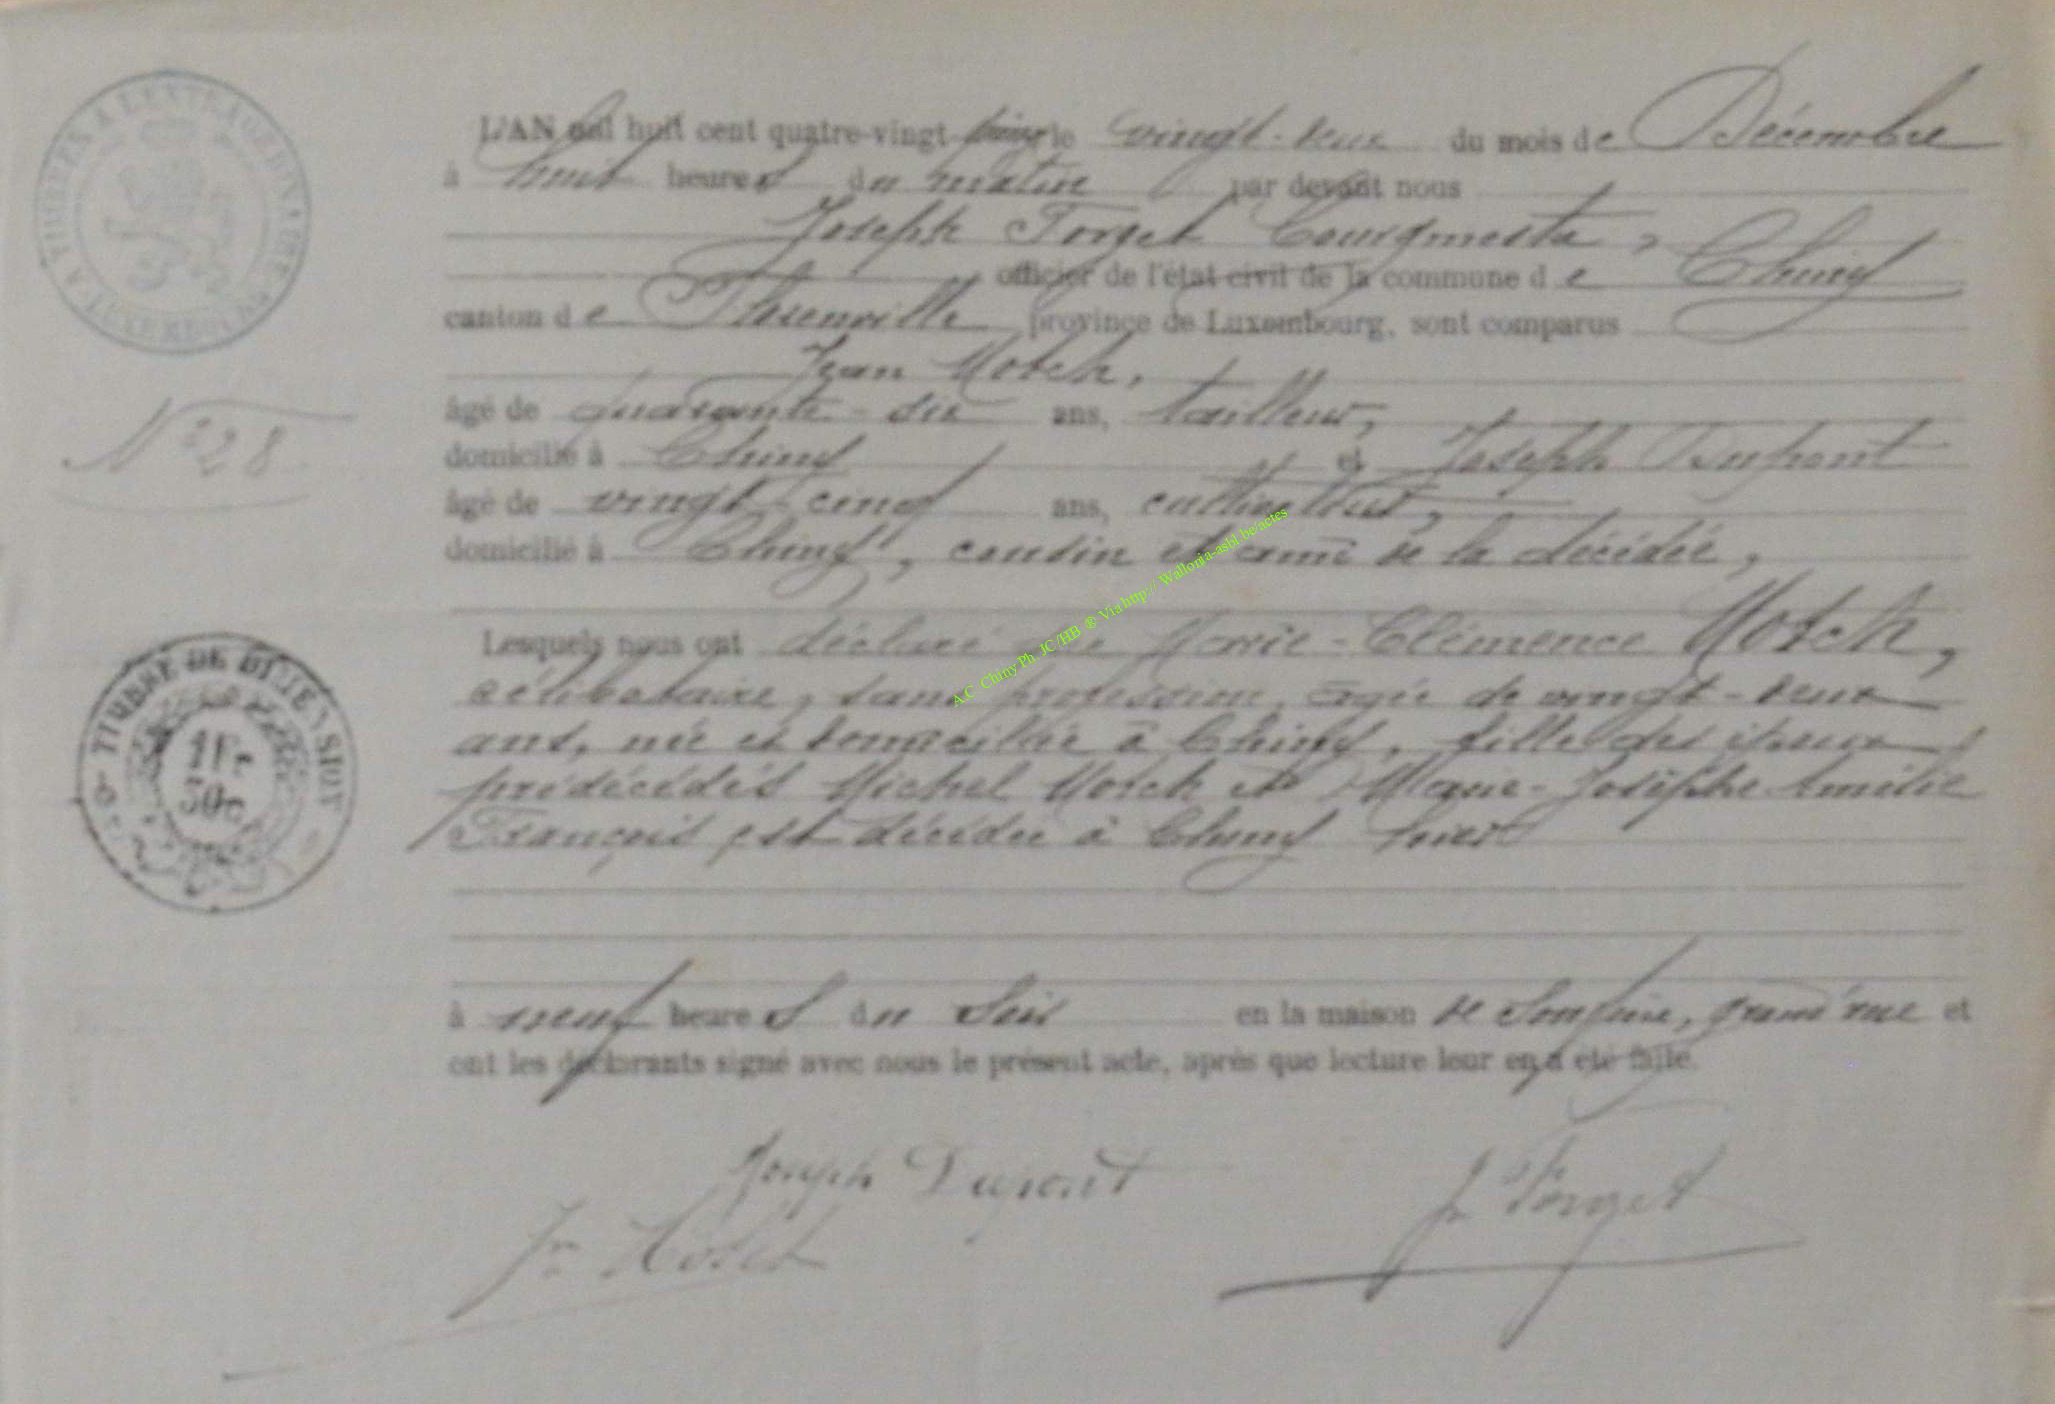 L'AN mil huit cent quatre-vingt- le vingt-deux du mois de Décembre
à huit heures du matin par devant nous
Joseph Forget bourgmestre,
officier de l'état civil de la commune de Chiny
canton de Florenville province de Luxembourg, sont comparus
Jean Hotch,
N° 28
âgé de quarante-six ans, tailleur,
domicilié à Chiny et Joseph Dupont
âgé de vingt-cinq ans, cultivateur,
domicilié à Chiny, cousin et ami de la décédée,
A.C Chiny Ph. JC/HB ® Via http:// Wallonia-asbl.be/actes
TIMBRE DE DIMENSION
1Fr
50c
Lesquels nous ont déclaré que Marie-Clémence Hotch,
célibataire, sans profession, âgée de vingt-deux
ans, née et domiciliée à Chiny, fille des époux
prédécédés Michel Hotch et Marie-Josèphe Amélie
François est décédée à Chiny hier
à neuf heures du soir en la maison de grand'rue et
ont les déclarants signé avec nous le présent acte, après que lecture leur en a été faite.
Joseph Dupont
Jn Hotch
Jh Forget